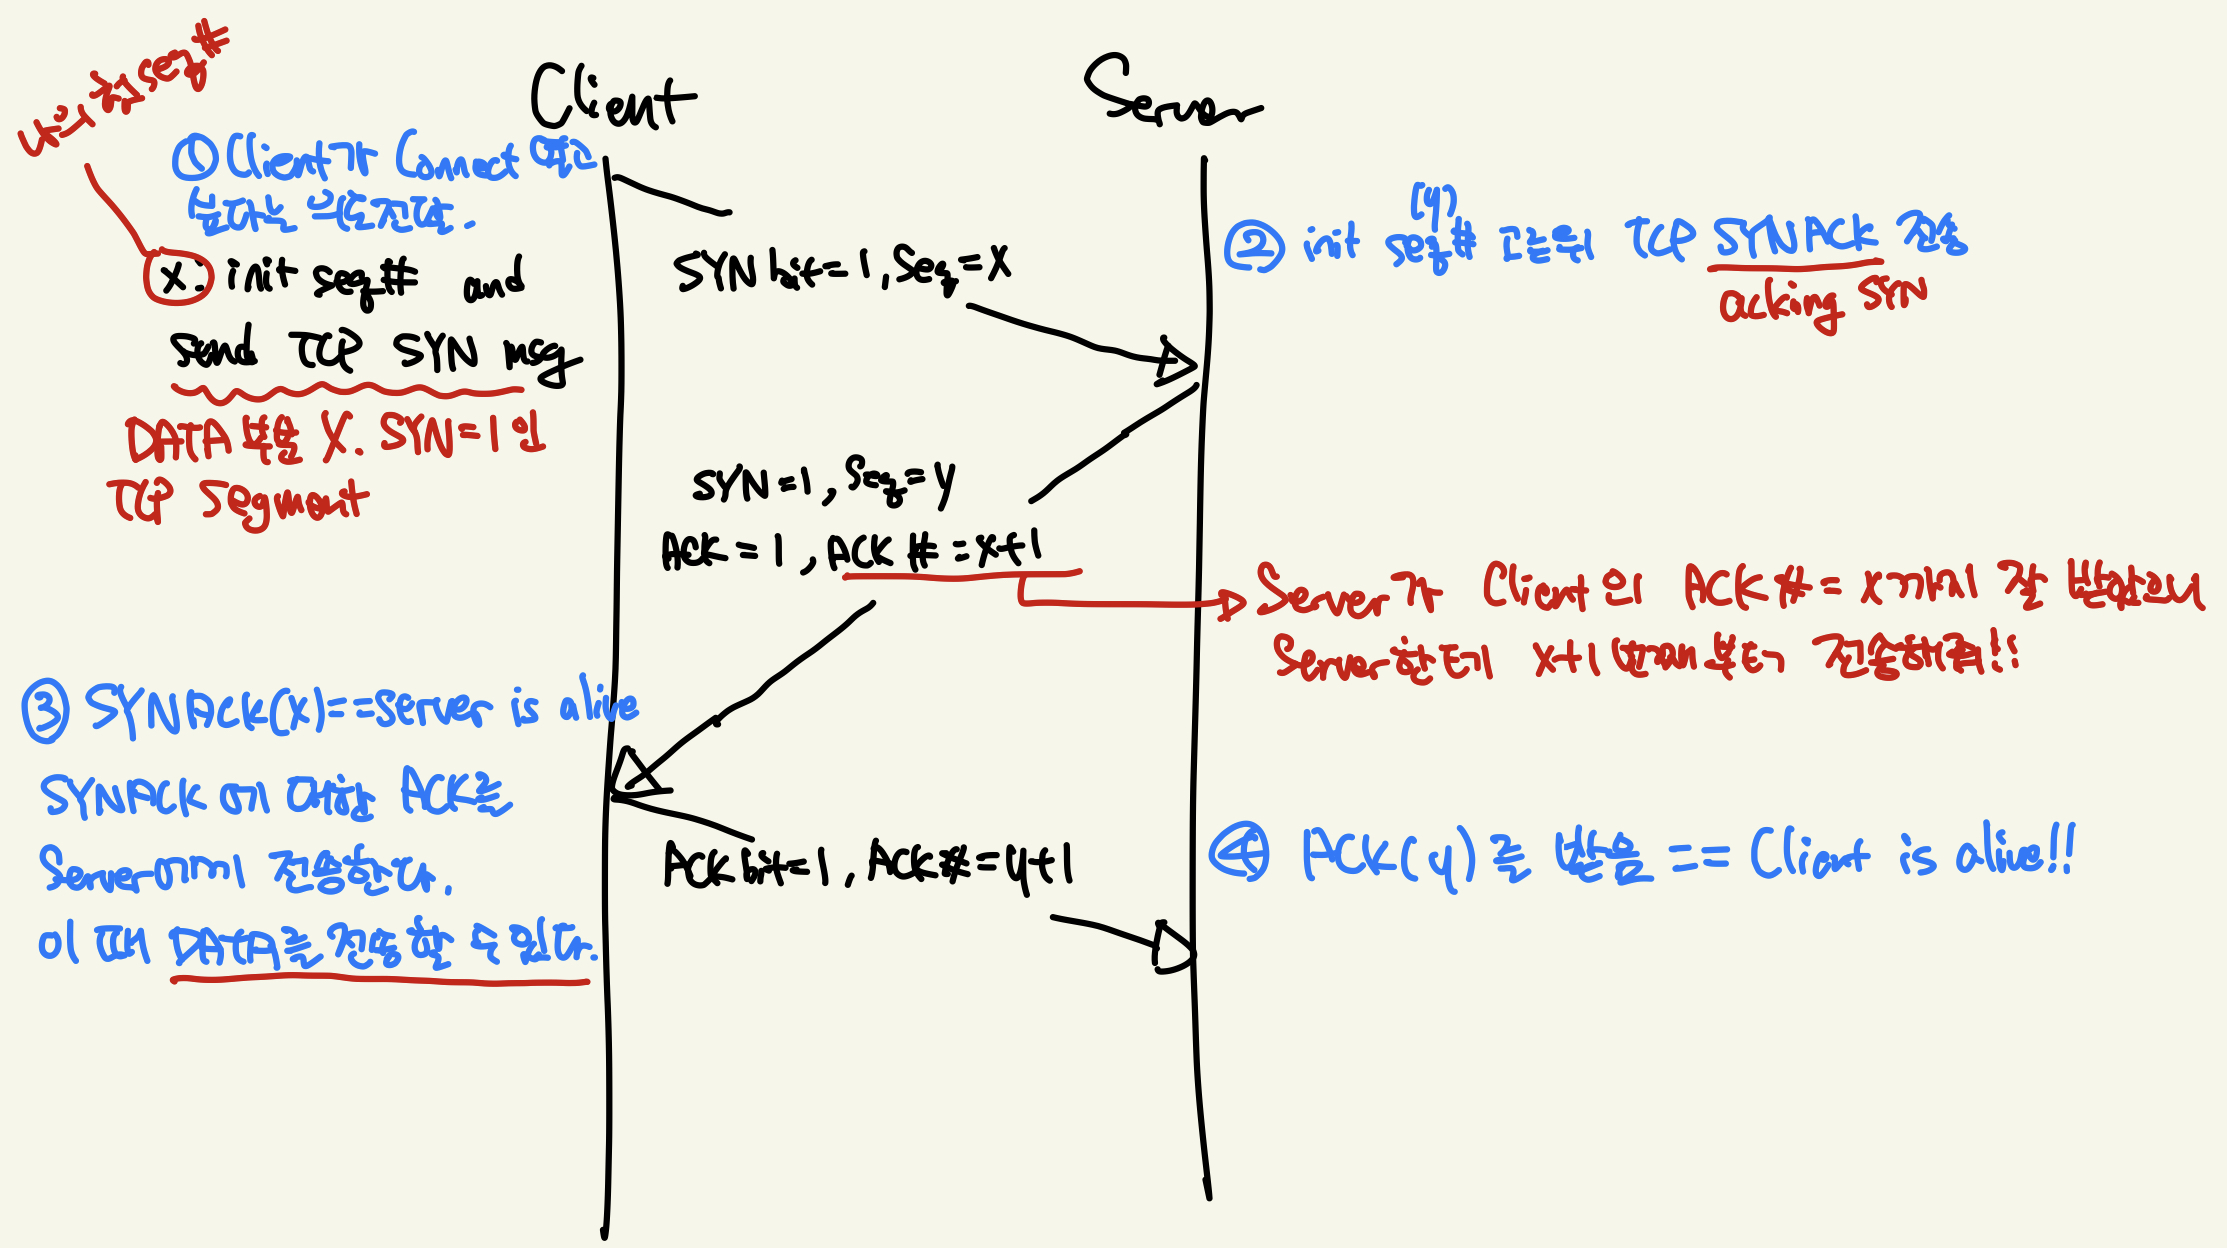 나의 첫 seq #
Client
Server
① Client가 Connect 맺고
싶다는 의도전달.
x: init seq# and
send TCP SYN msg
DATA 부분 X. SYN=1 인
TCP Segment
SYN bit=1, Seq=x
(y)
② init seq# 고른뒤 TCP SYNACK 전송
acking SYN
SYN=1, Seq=y
ACK=1, ACK#=x+1
Server가 Client의 ACK#=x까지 잘 받았으니
Server한테 x+1번째부터 전송해줘!!
③ SYNACK(x)==Server is alive
SYNACK에 대한 ACK를
Server에게 전송한다.
이때 DATA를 전송할 수 있다.
ACK bit=1, ACK#=y+1
④ ACK(y)를 받음 == Client is alive!!